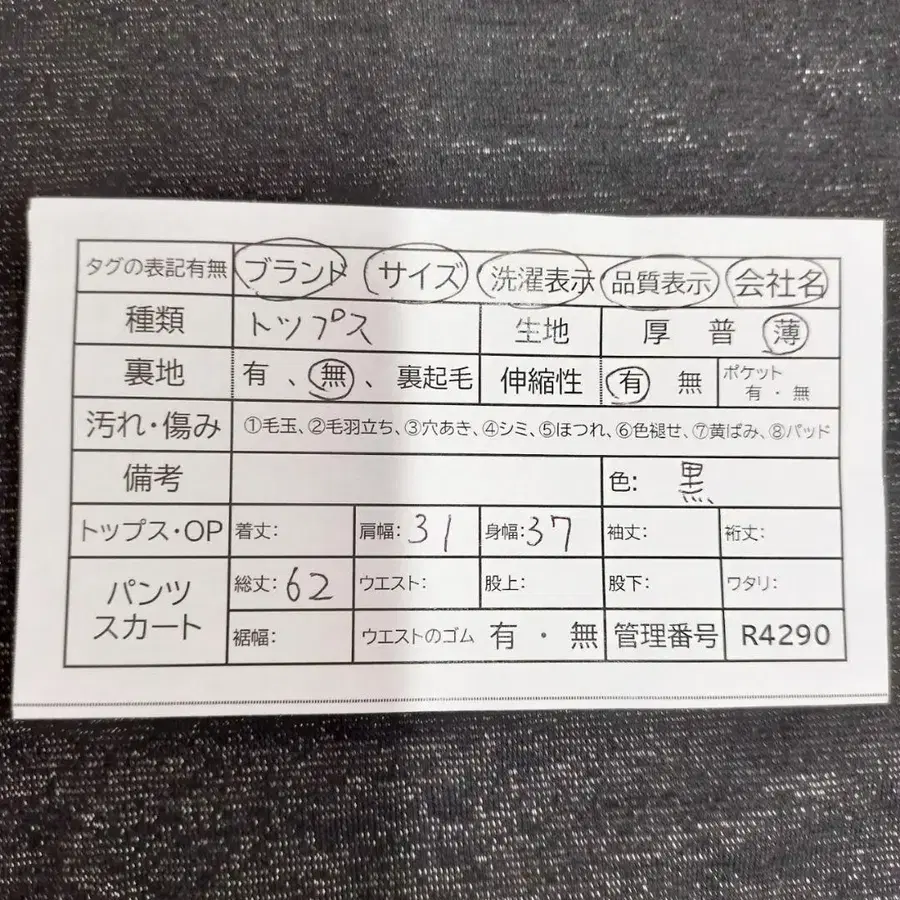 タグの表記有無 ブランド サイズ 洗濯表示 品質表示 会社名
種類 トップス 生地 厚 普 薄
裏地 有 、無 、裏起毛 伸縮性 有 無 ポケット 有・無
汚れ・傷み ①毛玉、②毛羽立ち、③穴あき、④シミ、⑤ほつれ、⑥色褪せ、⑦黄ばみ、⑧パッド
備考 色: 黒
トップス・OP 着丈: 肩幅: 31 身幅: 37 袖丈: 裄丈:
パンツ スカート 総丈: 62 ウエスト: 股上: 股下: ワタリ:
裾幅: ウエストのゴム 有・無 管理番号 R4290